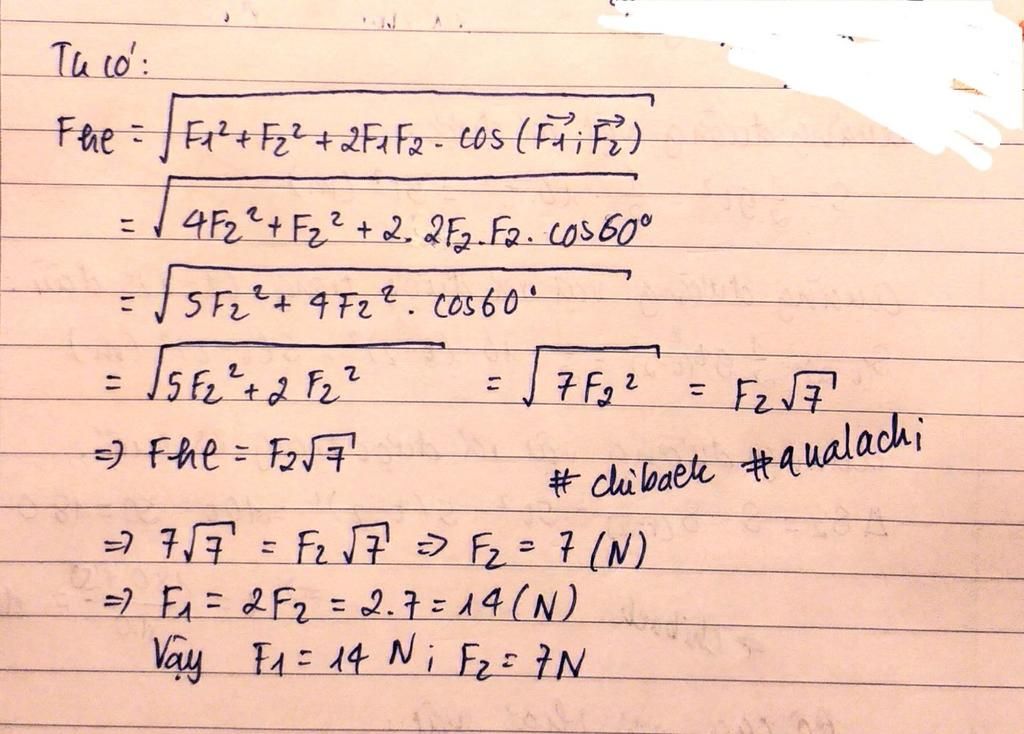 Ta có:
Fhl = √F1² + F2² + 2F1F2. cos (F1→; F2→)
= √4F2² + F2² + 2. 2F2.F2. cos60°
= √5F2² + 4F2². cos60°
= √5F2² + 2F2² = √7F2² = F2√7
=> Fhl = F2√7
# chibaek #qualachi
=> 7√7 = F2√7 => F2 = 7 (N)
=> F1 = 2F2 = 2.7 = 14 (N)
Vậy F1 = 14 N; F2 = 7N